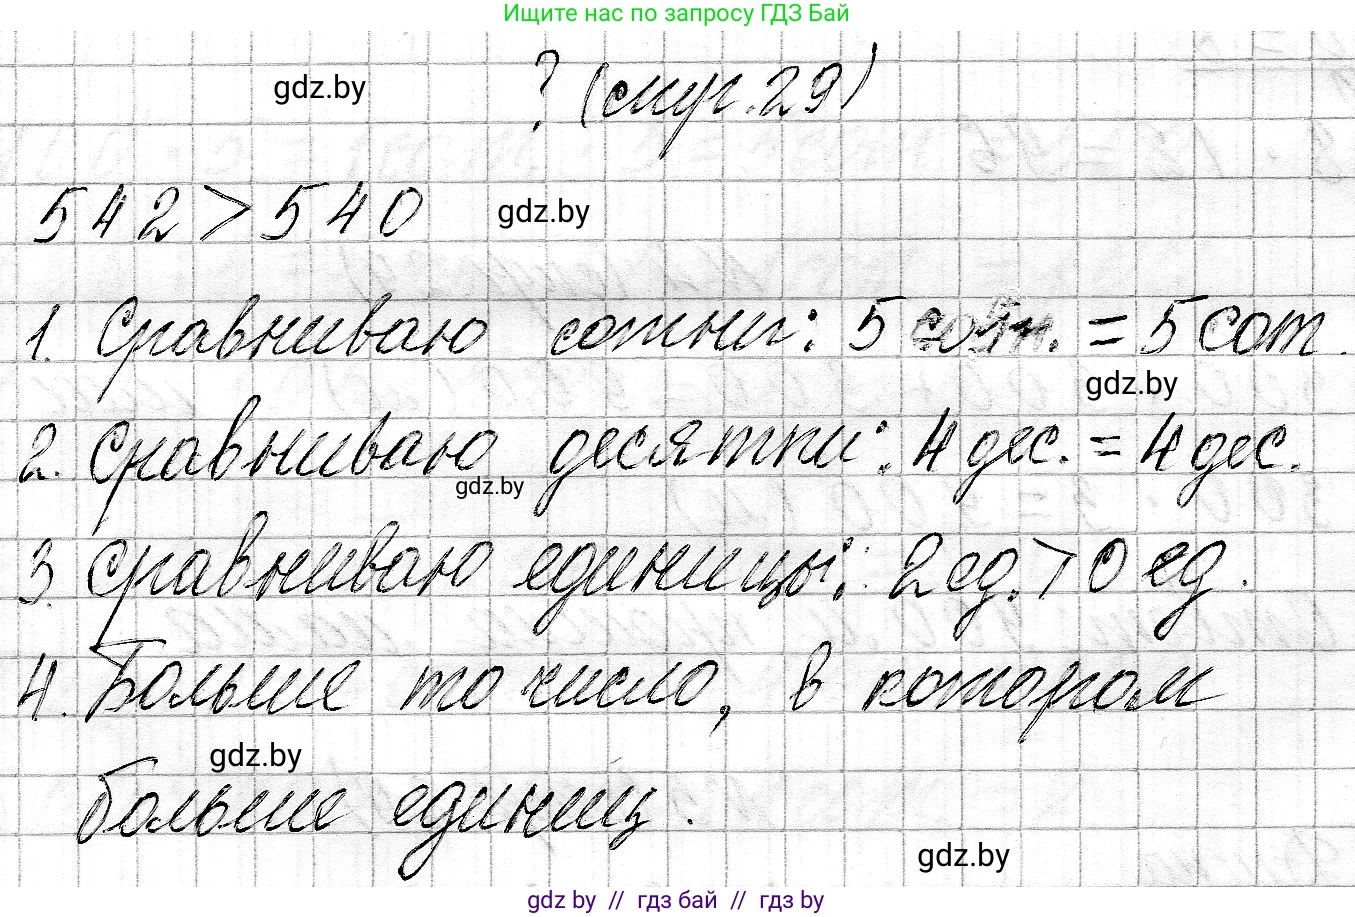 Ищите нас по запросу ГДЗ Бай
gdz.by
? (стр. 29)
542 > 540
gdz.by
1. Сравниваю сотни: 5 сотн. = 5 сот.
gdz.by
2. Сравниваю десятки: 4 дес. = 4 дес.
gdz.by
3. Сравниваю единицы: 2 ед. > 0 ед.
4. Больше то число, в котором
gdz.by
больше единиц.
gdz.by
gdz.by // гдз бай // гдз by